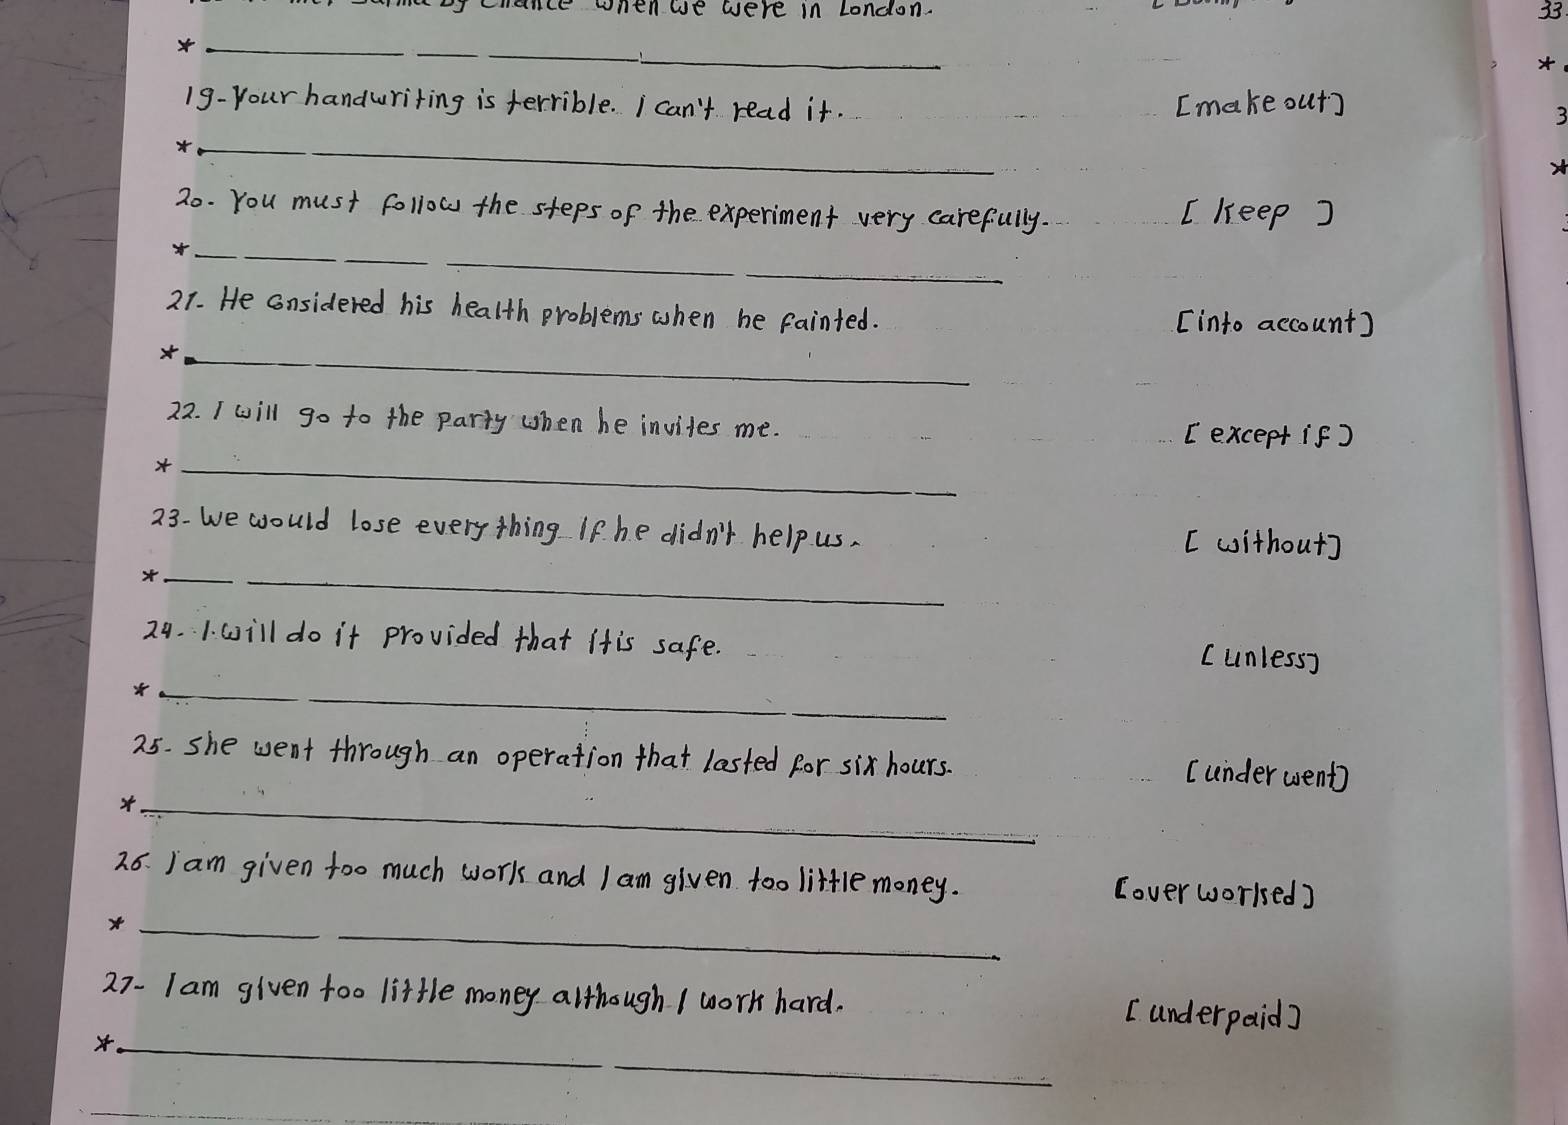 by chance when we were in London.
33
*
*
19-Your handwriting is terrible. I can't read it. [make out]
3
*
*
20. You must follow the steps of the experiment very carefully. [keep]
*
21- He considered his health problems when he fainted. [into account]
*
22. I will go to the party when he invites me. [except if)
*
23- We would lose everything if he didn't help us. [without]
*
24. I will do it provided that it is safe. [unless]
*
25- she went through an operation that lasted for six hours. [underwent)
*
26- I am given too much work and I am given too little money. [overworked]
*
27- I am given too little money although I work hard. [underpaid]
*